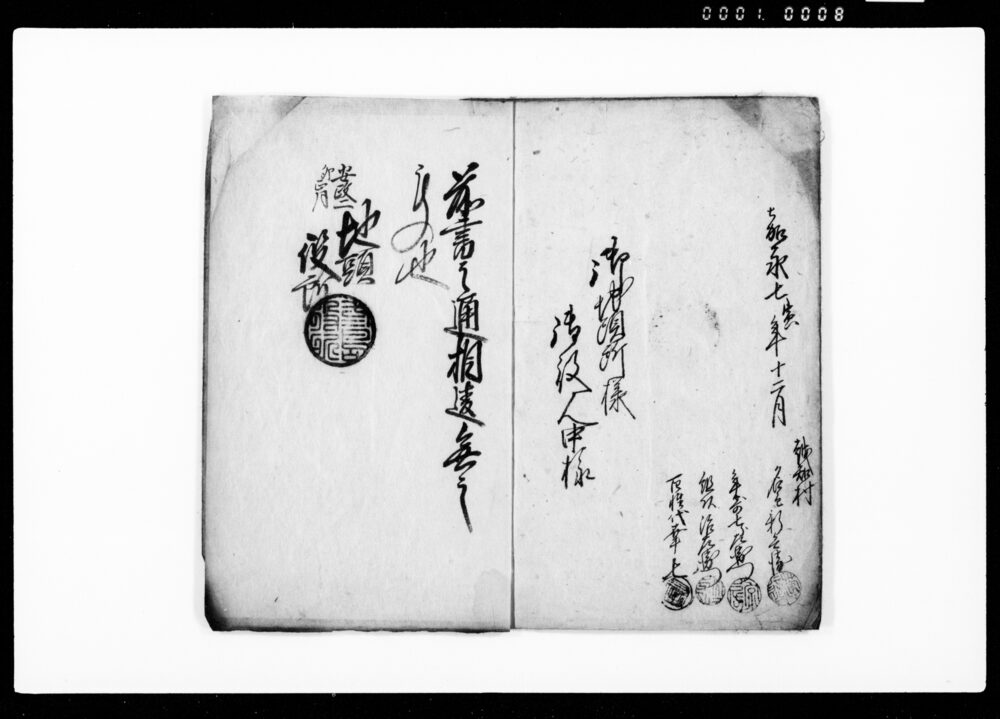 0001.0008
嘉永七寅年十二月
村
名主
年寄七左衛門
組頭治左衛門
百姓代幸七
御地頭所様
御役人中様
前書之通相違無之
もの也
安政二
卯正月
地頭
役所